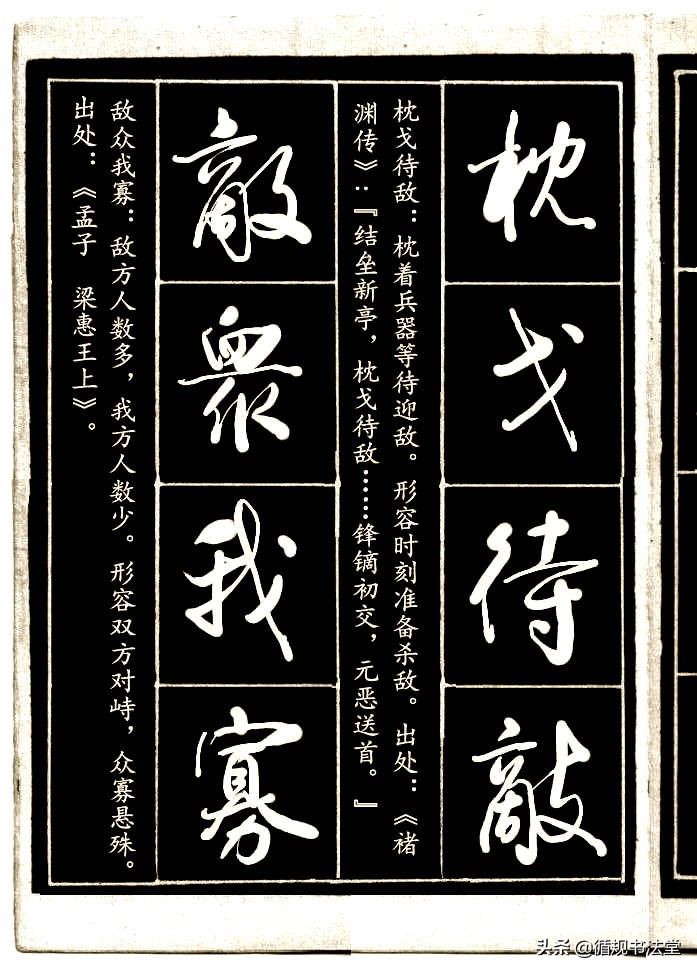 枕戈待敌
枕戈待敌：枕着兵器等待迎敌。形容时刻准备杀敌。出处：《褚
渊传》：『结垒新亭，枕戈待敌……锋镝初交，元恶送首。』
敵眾我寡
敌众我寡：敌方人数多，我方人数少。形容双方对峙，众寡悬殊。
出处：《孟子 梁惠王上》。
头条 @循规书法堂